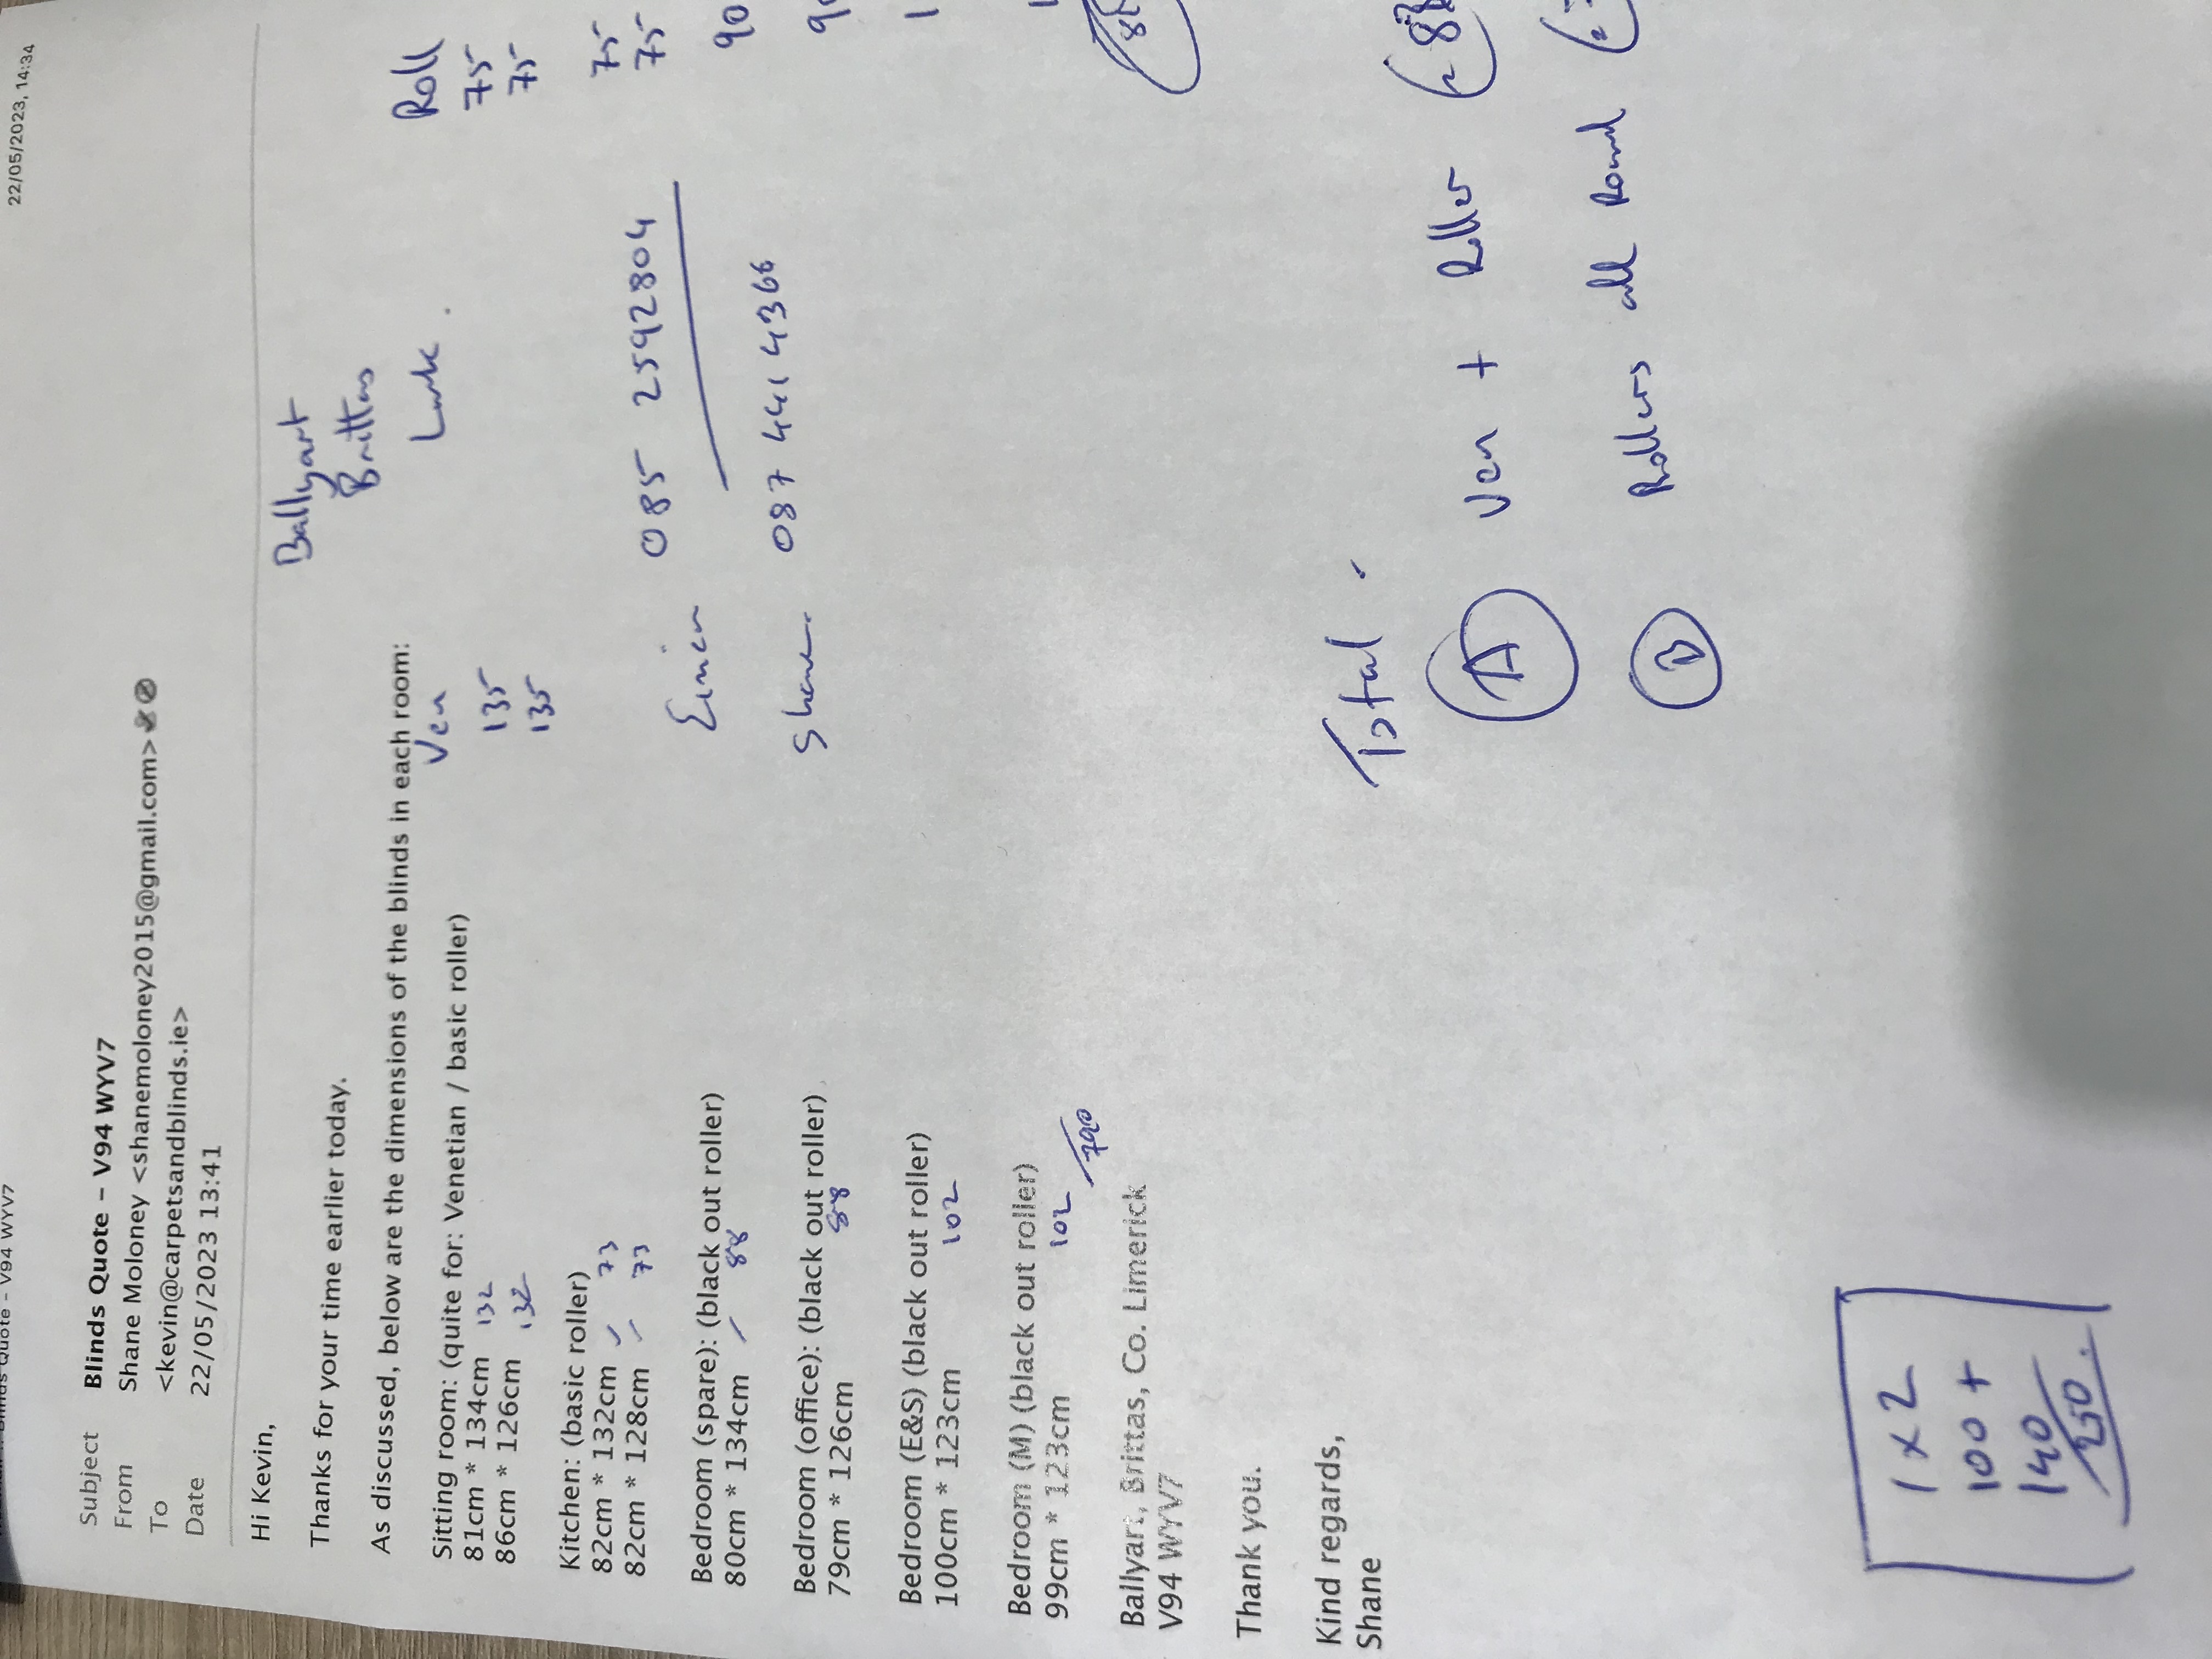 22/05/2023, 14:34
Blinds Quote - V94 WYV7
Subject Blinds Quote - V94 WYV7
From Shane Moloney <shanemoloney2015@gmail.com>
To <kevin@carpetsandblinds.ie>
Date 22/05/2023 13:41
Hi Kevin,
Ballyart
Brittas
Thanks for your time earlier today.
As discussed, below are the dimensions of the blinds in each room:
Ven Roll
Sitting room: (quite for: Venetian / basic roller)
81cm * 134cm 132 135 75
86cm * 126cm 132 135 75
Kitchen: (basic roller)
82cm * 132cm ✓ 73 75
82cm * 128cm 73 75
Eimier 085 2592804
Bedroom (spare): (black out roller)
80cm * 134cm 88 90
Shane 087 441 4366
Bedroom (office): (black out roller)
79cm * 126cm 88
Bedroom (E&S) (black out roller)
100cm * 123cm 102
Bedroom (M) (black out roller)
99cm * 123cm 102
790
Ballyart, Brittas, Co. Limerick
V94 WYV7
Thank you.
Kind regards,
Shane
Total
A Ven + Roller
Rollers all Round
1 x 2
100 +
140